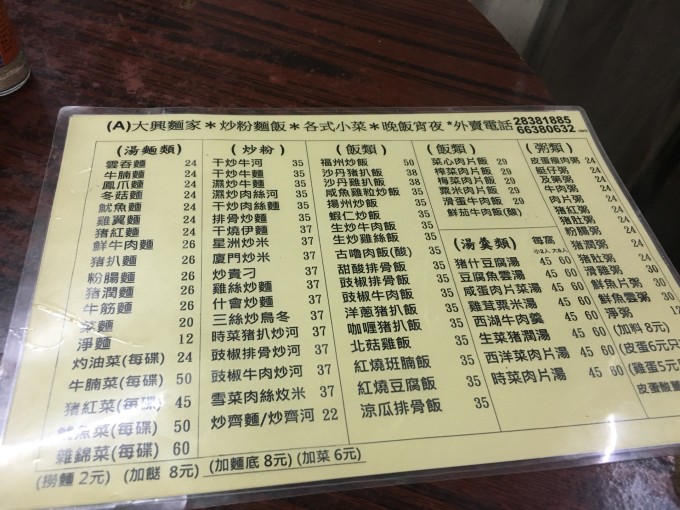 (A)大興麵家＊炒粉麵飯＊各式小菜＊晚飯宵夜*外賣電話 28381885
66380632
(湯麵類)
雲吞麵 24
牛腩麵 24
鳳爪麵 24
冬菇麵 24
魷魚麵 24
雞翼麵 24
豬紅麵 24
鮮牛肉麵 26
豬扒麵 26
粉腸麵 26
猪潤麵 26
牛筋麵 26
菜麵 20
淨麵 12
灼油菜(每碟) 24
牛腩菜(每碟) 50
猪紅菜(每碟) 45
魷魚菜(每碟) 50
雜錦菜(每碟) 60
(炒粉)
干炒牛河 35
干炒牛麵 35
濕炒肉絲河 35
濕炒肉絲麵 35
干炒肉絲麵 38
排骨炒麵 35
干燒伊麵 35
星洲炒米 37
廈門炒米 37
炒貴刁 37
雞絲炒麵 37
什會炒麵 37
三絲炒烏冬 37
時菜豬扒炒河 37
豉椒排骨炒河 37
豉椒牛肉炒河 37
雪菜肉絲炆米 37
炒齋麵/炒齋河 22
(飯類)
福州炒飯 50
沙丹豬扒飯 38
沙丹雞扒飯 38
咸魚雞粒炒飯 35
揚州炒飯 35
蝦仁炒飯 35
生炒牛肉飯 35
生炒雞絲飯 35
古嚕肉飯(酸) 35
甜酸排骨飯 35
豉椒排骨飯 35
豉椒牛肉飯 35
洋蔥豬扒飯 35
咖喱豬扒飯 35
北菇雞飯 35
紅燒班腩飯 35
紅燒豆腐飯 35
涼瓜排骨飯 35
(飯類)
菜心肉片飯 29
榨菜肉片飯 29
梅菜肉片飯 29
粟米肉片飯 29
滑蛋牛肉飯 29
鮮茄牛肉飯(酸)
(湯羹類) 每窩
豬什豆腐湯 45 60
豆腐魚雲湯 45 60
咸蛋肉片菜湯 45 60
雞茸粟米湯 45 60
西湖牛肉羹 45 60
生菜猪潤湯 45 60
西洋菜肉片湯 45 60
時菜肉片湯 45 60
(粥類)
皮蛋瘦肉粥 24
艇仔粥 24
及第粥 24
牛肉粥 24
肉片粥 24
猪紅粥 24
猪肚粥 24
粉腸粥 24
猪潤粥 24
滑雞粥 30
鮮魚片粥 30
鮮魚雲粥 30
淨粥 12
(加料 8元)
(皮蛋6元只
(雞蛋5元只
(撈麵 2元) (加餸 8元) (加麵底 8元) (加菜 6元)